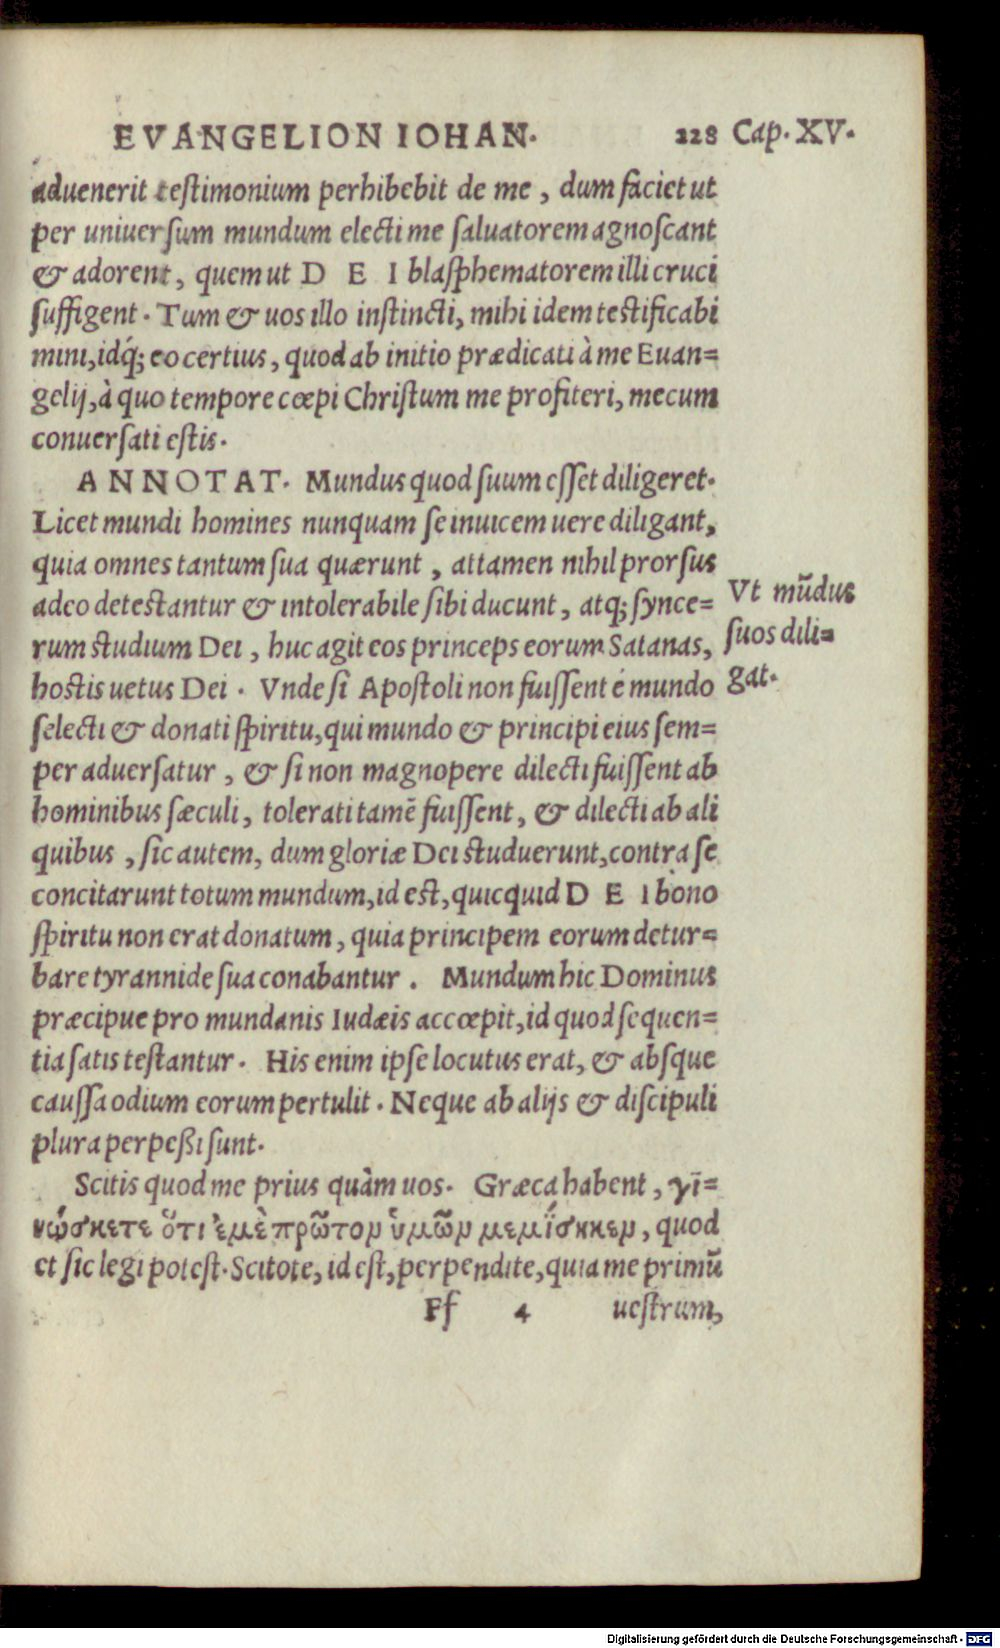 EVANGELION IOHAN. 228 Cap. XV.
aduenerit testimonium perhibebit de me, dum faciet ut
per uniuersum mundum electi me saluatorem agnoscant
& adorent, quem ut D E I blasphematorem illi cruci
suffigent. Tum & uos illo instincti, mihi idem testificabi
mini, idq́; eo certius, quod ab initio prædicati à me Euan=
gelij, à quo tempore cœpi Christum me profiteri, mecum
conuersati estis.
ANNOTAT. Mundus quod suum esset diligeret.
Licet mundi homines nunquam se inuicem uere diligant,
quia omnes tantum sua quærunt, attamen nihil prorsus
adeo detestantur & intolerabile sibi ducunt, atq; synce=
rum studium Dei, huc agit eos princeps eorum Satanas,
hostis uetus Dei. Vnde si Apostoli non fuissent é mundo
selecti & donati spiritu, qui mundo & principi eius sem=
per aduersatur, & si non magnopere dilecti fuissent ab
hominibus sæculi, tolerati tamē fuissent, & dilecti ab ali
quibus, sic autem, dum gloriæ Dei studuerunt, contra se
concitarunt totum mundum, id est, quicquid D E I bono
spiritu non erat donatum, quia principem eorum detur=
bare tyrannide sua conabantur. Mundum hic Dominus
præcipue pro mundanis Iudæis accœpit, id quod sequen=
tia satis testantur. His enim ipse locutus erat, & absque
caussa odium eorum pertulit. Neque ab alijs & discipuli
plura perpeßi sunt.
Vt mūdus
suos dili=
gat.
Scitis quod me prius quàm uos. Græca habent, γι=
νώσκετε ὅτι ἐμὲ πρῶτον ὑμῶν μεμίσηκεν, quod
et sic legi potest. Scitote, id est, perpendite, quia me primū
Ff 4 uestrum,
Digitalisierung gefördert durch die Deutsche Forschungsgemeinschaft - DFG